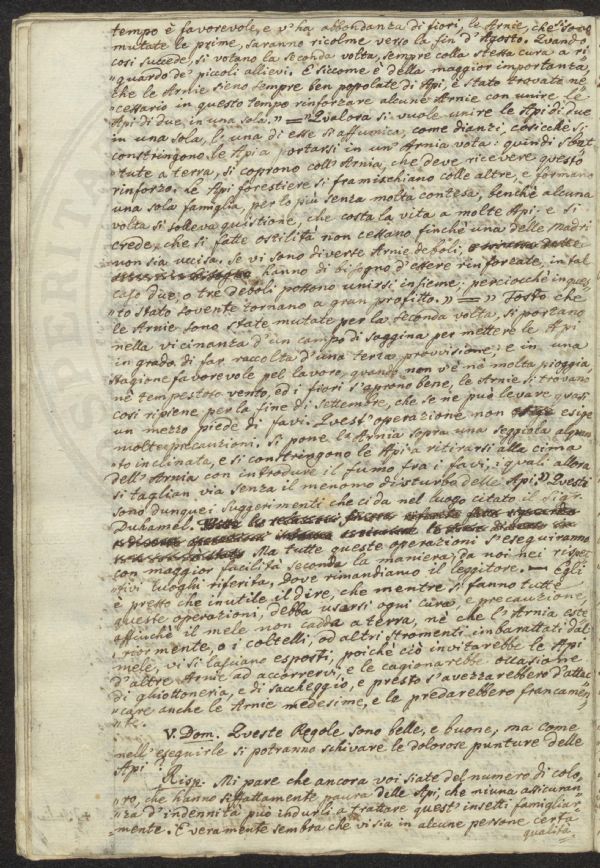 tempo è favorevole, e v'ha abbondanza di fiori, le Arnie, che sono
mutate le prime, saranno ricolme verso la fin d'Agosto. Quando
così succede, si votano la seconda volta, sempre colla stessa cura a ri=
guardo de' piccoli allievi. E siccome è della maggior importanza,
che le Arnie sieno sempre ben popolate di Api, è stato trovato ne=
cessario in questo tempo rinforzare alcune Arnie con unire le
Api di due, in una sola." = "Qualora si vuole unire le Api di due
in una sola, l'una di esse si affumica, come dianzi, cosicchè si
constringono le Api a portarsi in un'Arnia vota: quindi sbat=
tute a terra, si coprono coll'Arnia, che deve ricevere questo
rinforzo. Le Api forestiere si framischiano colle altre, e formano
una sola famiglia, per lo più senza molta contesa, benchè alcuna
volta si solleva quistione, che costa la vita a molte Api: e si
crede, che sì fatte ostilità non cessano finchè una delle Madri
non sia uccisa. Se vi sono diverse Arnie deboli,
hanno di bisogno d'essere rinforzate, in tal
caso due, o tre deboli possono unirsi insieme; perciocchè in ques=
to stato sovente tornano a gran profitto." = "Tosto che
le Arnie sono state mutate per la seconda volta, si portano
nella vicinanza d'un campo di Saggina per mettere le Api
in grado di far raccolta d'una terza provvisione; e in una
stagione favorevole pel lavoro, quando non v'è nè molta pioggia,
nè tempestoso vento, ed i fiori s'aprono bene, le Arnie si trovano
così ripiene per la fine di Settembre, che se ne può levare quasi
un mezzo piede di favi. Quest'operazione non esige
molte precauzioni. Si pone l'Arnia sopra una seggiola alquan=
to inclinata, e si constringono le Api a ritirarsi alla cima
dell'Arnia con introdurre il fumo fra i favi, i quali allora
si taglian via senza il menomo disturbo delle Api." Questi
sono dunque i suggerimenti che ci da nel luogo citato il Sigr.
Duhamel.
Ma tutte queste operazioni s'eseguiranno
con maggior facilità secondo la maniera, da noi nei rispet=
tivi luoghi riferita, dove rimandiamo il leggitore. — Egli
è presso che inutile il dire, che mentre si fanno tutte
queste operazioni, debba usarsi ogni cura, e precauzione,
affinchè il mele non cadda a terra, nè che l'Arnia este=
riormente, o i coltelli, od altri stromenti imbarattati dal
mele, vi si lasciano esposti, poichè ciò inviterebbe le Api
d'altre Arnie ad accorrervi, e le cagionarebbe occasione
di ghiottoneria, e di saccheggio, e presto s'avezzarebbero d'attac=
care anche le Arnie medesime, e le predarebbero francamen=
te.
V. Dom. Queste Regole sono belle, e buone, ma come
nell'eseguirle si potranno schivare le dolorose punture delle
Api?
Risp. Mi pare che ancora voi siate del numero di colo=
ro, che hanno siffattamente paura delle Api, che niuna assicuran=
za d'indennità può indurli a trattare quest'insetti famigliar=
mente. E veramente sembra che vi sia in alcune persone certa
qualità